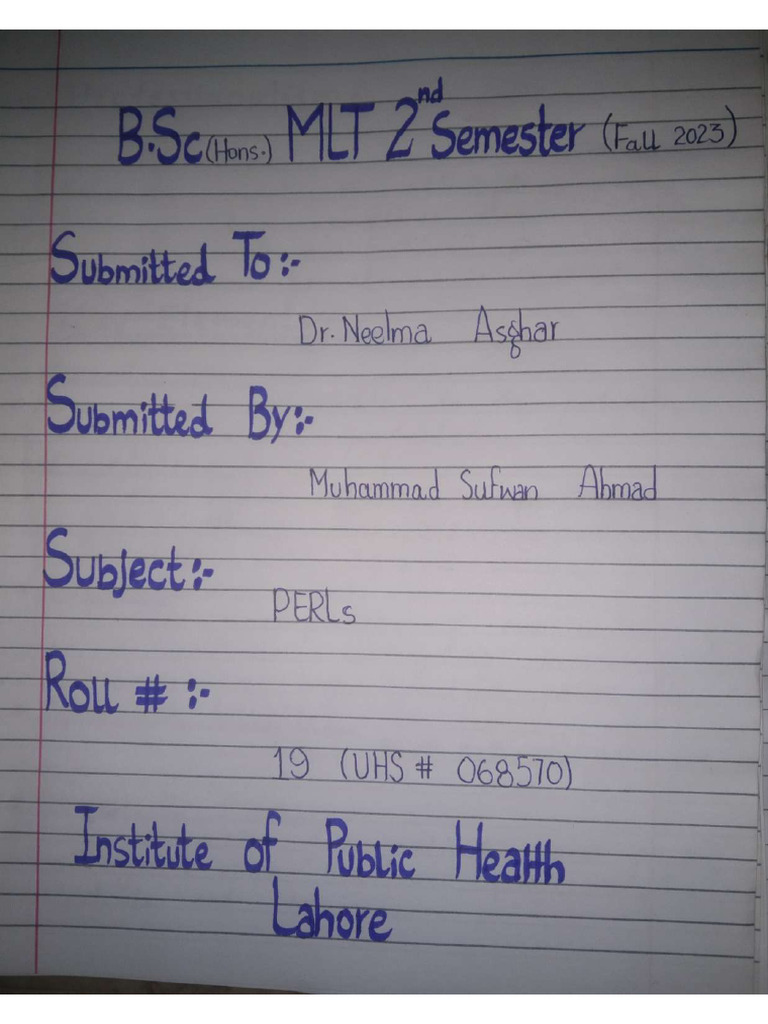 B.Sc (Hons.) MLT 2nd Semester (Fall 2023)
Submitted To :-
Dr. Neelma Asghar
Submitted By :-
Muhammad Sufwan Ahmad
Subject :-
PERLs
Roll # :-
19 (UHS # 068570)
Institute of Public Health
Lahore